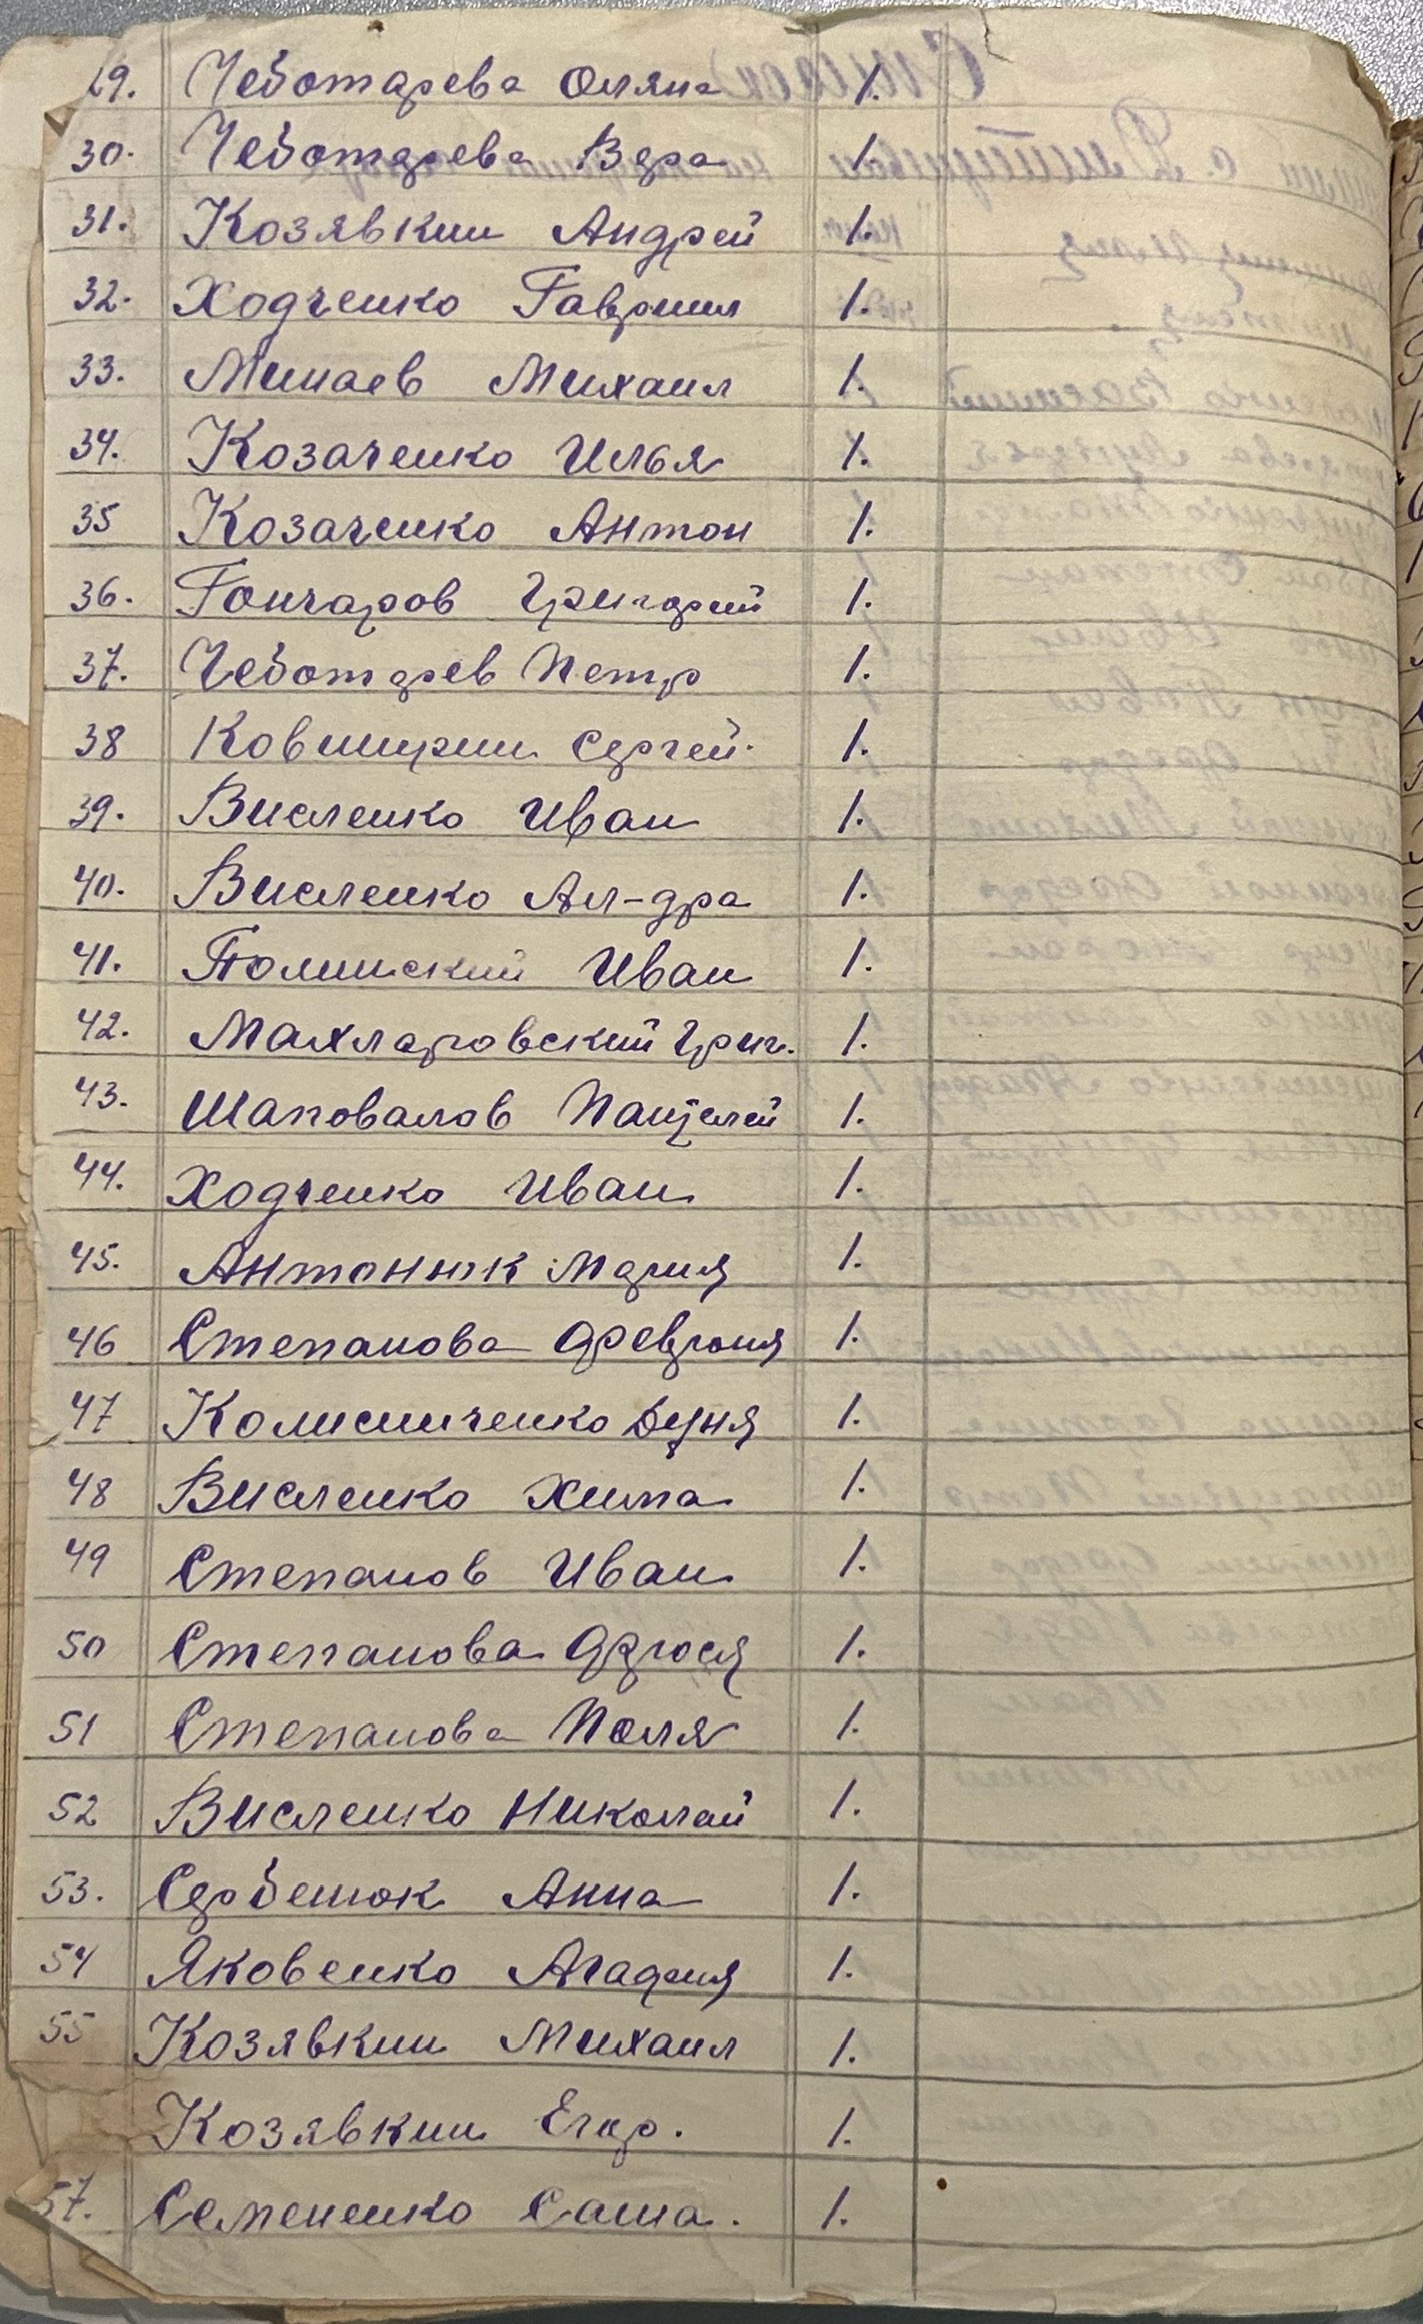 29. Чеботарева Оляна 1.
30. Чеботарева Вера 1.
31. Козявкин Андрей 1.
32. Ходченко Гавриил 1.
33. Минаев Михаил 1.
34. Козаченко Илья 1.
35 Козаченко Антон 1.
36. Гончаров Григорий 1.
37. Чеботарев Петр 1.
38 Сергей. 1.
39. Висленко Иван 1.
40. Висленко Ал-дра 1.
41. Иван 1.
42. Махларовский Григ. 1.
43. Шаповалов Пантелей 1.
44. Ходченко Иван 1.
45. Антонюк Мария 1.
46 Степанова Феврония 1.
47 Колисниченко Дуня 1.
48 Висленко Хима 1.
49 Степанов Иван 1.
50 Степанова Фрося 1.
51 Степанова Поля 1.
52 Висленко Николай 1.
53. Сербенюк Анна 1.
54 Яковенко Агафия 1.
55 Козявкин Михаил 1.
Козявкин Егор. 1.
57. Семененко Саша. 1.